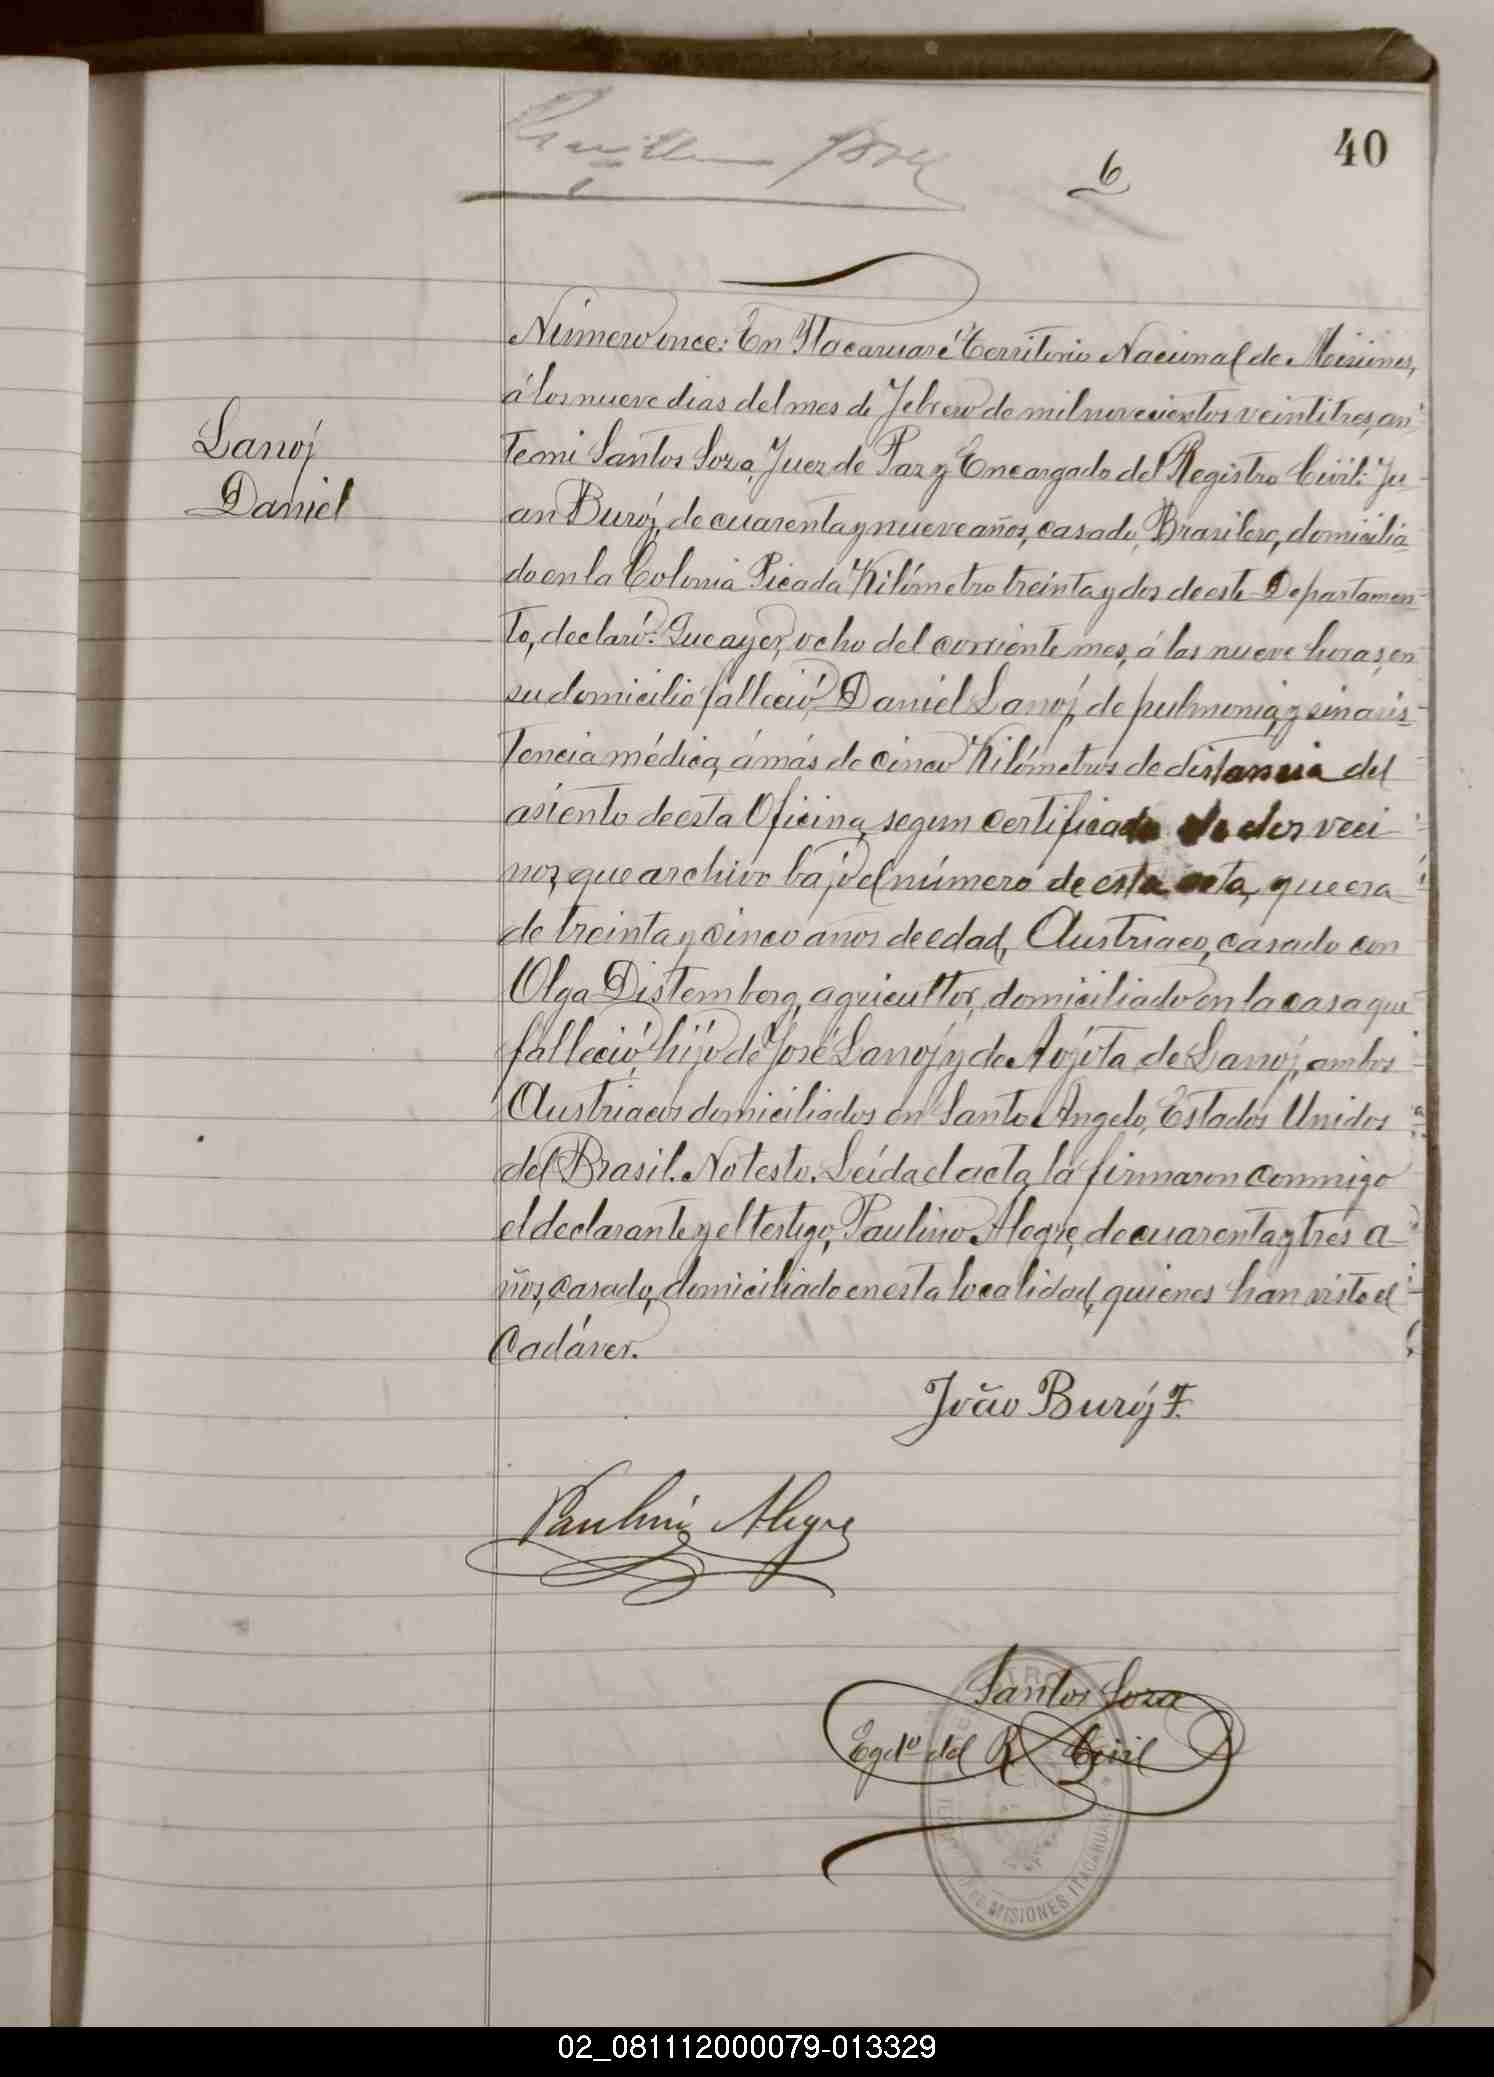 40
6
Número once: En Itacaruaré Territorio Nacional de Misiones,
á los nueve dias del mes de Febrero de mil novecientos veintitres, an
te mi Santos Soza, Juez de Paz y Encargado del Registro Civil: Ju-
an Buroj, de cuarenta y nueve años, casado, Brasilero, domicilia-
do en la Colonia Picada Kilómetro treinta y dos de este Departamen-
to, declaró: Que ayer, ocho del corriente mes, á las nueve horas, en
su domicilio falleció Daniel Lanoj, de pulmonia, y sin asis-
tencia médica, á más de cinco Kilómetros de distancia del
asiento de esta Oficina, segun certificado de dos veci-
nos, que archivo bajo el número de esta acta, que era
de treinta y cinco años de edad, Austriaco, casado con
Olga Distemberg, agricultor, domiciliado en la casa que
falleció, hijo de José Lanoj y de de Lanoj, ambos
Austriacos domiciliados en Santo Angelo, Estados Unidos
del Brasil. No testo. Leída el acta, la firmaron conmigo
el declarante y el testigo, Paulino Alegre, de cuarenta y tres a-
ños, casado, domiciliado en esta localidad, quienes han visto el
Cadáver.
Lanoj
Daniel
João Buroj F.
Paulino Alegre
Santos Soza
Egdo del R. Civil
MISIONES ITACARUARÉ
02_081112000079-013329